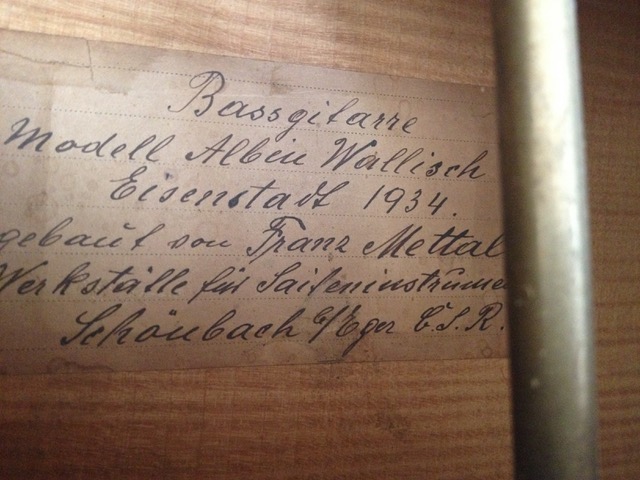 Bassgitarre
Modell Albin Wallisch
Eisenstadt 1934.
gebaut von Franz Mettal
Werkstätte für Saiteninstrume
Schönbach b/Eger Č.S.R.